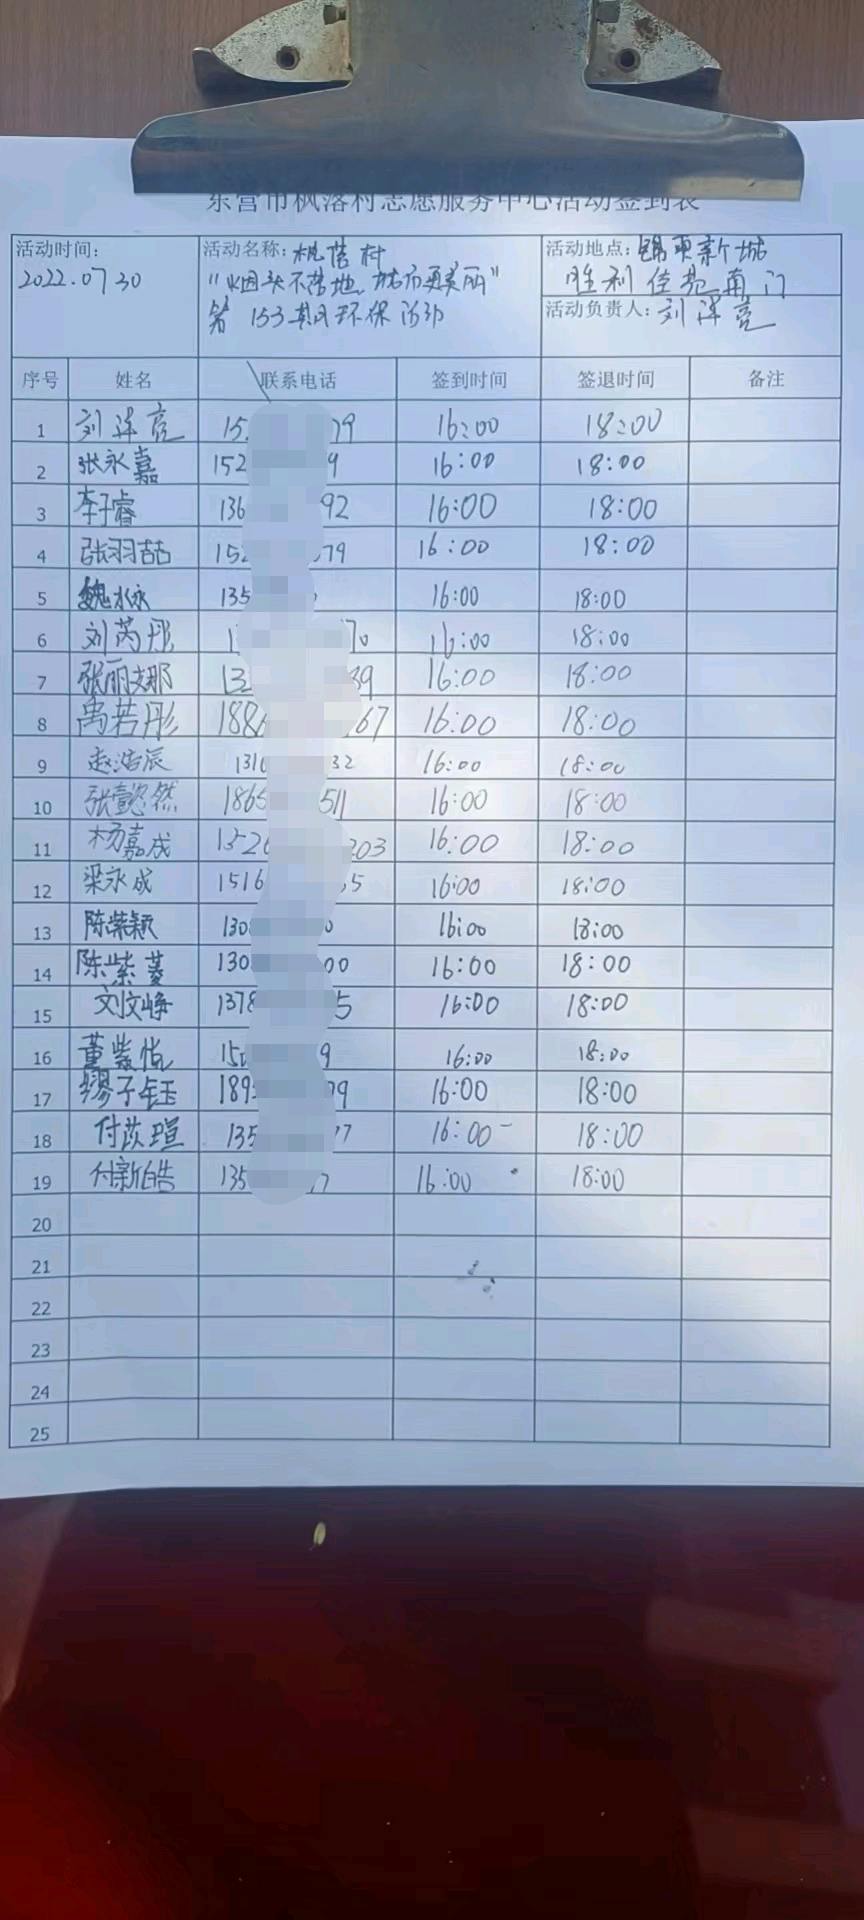 东营市枫落村志愿服务中心活动签到表
活动时间: 活动名称: 枫落村 活动地点: 新城
2022.07.30 "烟头不落地,城市更美丽" 胜利佳苑南门
第153期环保活动 活动负责人: 刘洋亮
序号 姓名 联系电话 签到时间 签退时间 备注
1 刘洋亮 15 79 16:00 18:00
2 张永嘉 152 9 16:00 18:00
3 李子睿 136 92 16:00 18:00
4 张羽喆 152 79 16:00 18:00
5 魏 135 16:00 18:00
6 刘芮彤 1 70 16:00 18:00
7 张丽娜 132 39 16:00 18:00
8 禹若彤 1886 67 16:00 18:00
9 赵浩辰 131 32 16:00 18:00
10 张懿然 1865 511 16:00 18:00
11 杨嘉成 1526 203 16:00 18:00
12 梁永成 1516 55 16:00 18:00
13 陈紫颖 130 0 16:00 18:00
14 陈紫菱 130 00 16:00 18:00
15 刘文峥 1378 5 16:00 18:00
16 董紫悦 150 9 16:00 18:00
17 缪子钰 189 79 16:00 18:00
18 付苡瑄 135 77 16:00 18:00
19 付新皓 135 7 16:00 18:00
20
21
22
23
24
25